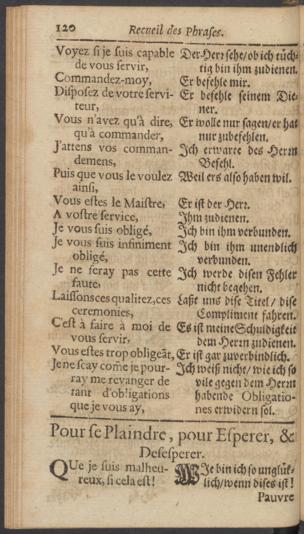 120 Recueil des Phrases.
Voyez si je suis capable
de vous servir,
Commandez-moy,
Disposez de votre servi-
teur,
Vous n'avez qu'à dire,
qu'à commander,
J'attens vos comman-
demens,
Puis que vous le voulez
ainsi,
Vous estes le Maistre,
A vostre service,
Je vous suis obligé,
Je vous suis infiniment
obligé,
Je ne feray pas cette
faute,
Laissons ces qualitez, ces
ceremonies,
C'est à faire à moi de
vous servir,
Vous estes trop obligeāt,
Je ne scay come je pour-
ray me revanger de
tant d'obligations
que je vous ay,
Der Herr sehe/ ob ich tüch-
tig bin ihm zudienen.
Er befehle mir.
Er befehle seinem Die-
ner.
Er wolle nur sagen/ er hat
nur zubefehlen.
Ich erwarte des Herrn
Befehl.
Weil ers also haben wil.
Er ist der Herr.
Ihm zudienen.
Ich bin ihm verbunden.
Ich bin ihm unendlich
verbunden.
Ich werde disen Fehler
nicht begehen.
Laßt uns dise Titel/ dise
Compliment fahren.
Es ist meine Schuldigkeit
dem Herrn zudienen.
Er ist gar zuverbindlich.
Ich weiß nicht/ wie ich so
vile gegen dem Herrn
habende Obligatio-
nes erwidern sol.
Pour se Plaindre, pour Esperer, &
Desesperer.
QUe je suis malheu-
reux, si cela est!
WIe bin ich so unglük-
lich/ wenn dises ist!
Pauvre